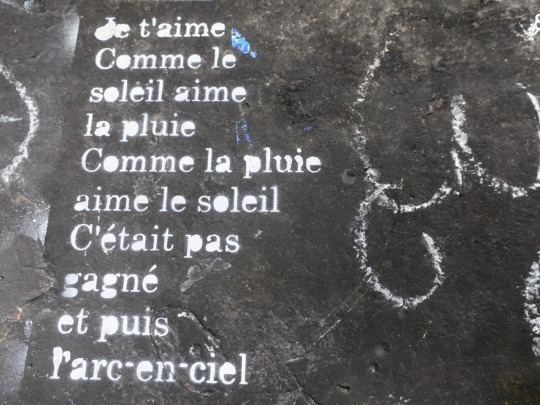 Je t'aime
Comme le
soleil aime
la pluie
Comme la pluie
aime le soleil
C'était pas
gagné
et puis
l'arc-en-ciel